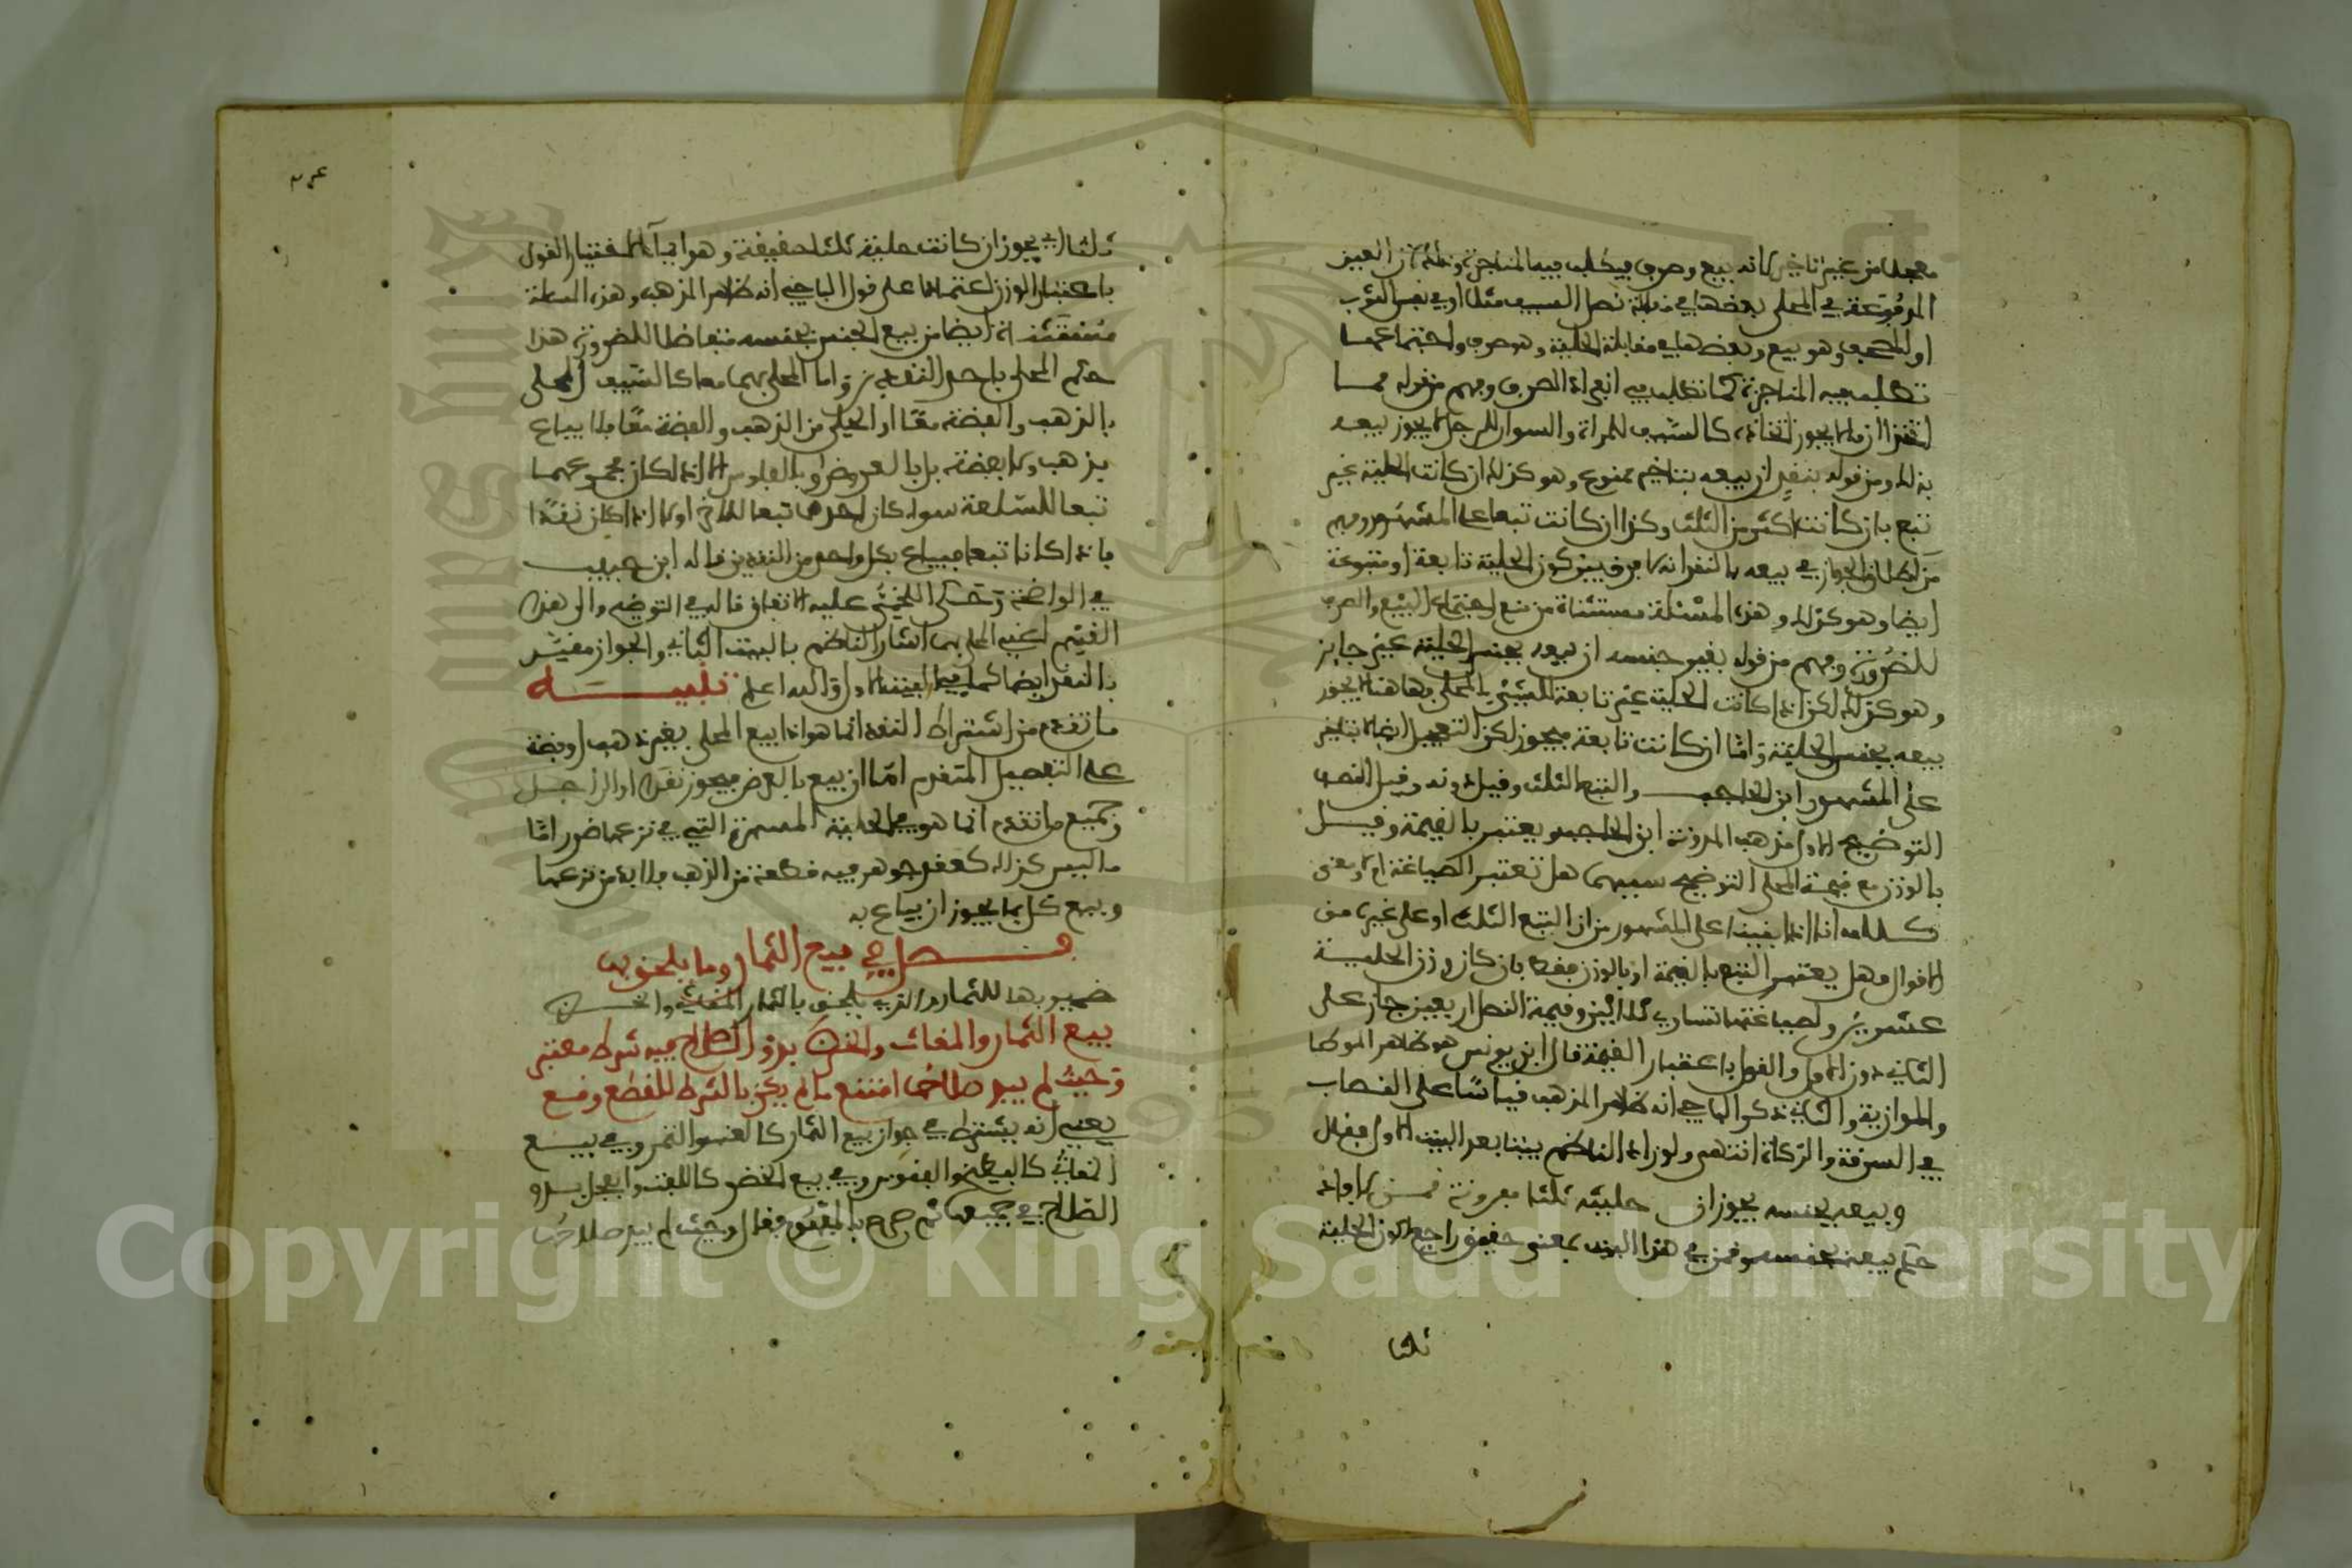 معجلا من غير تأخير لانه بيع وصرف فيطلب فيه المناجزة وذلك ان العين
المدفوعة في المحلى بعضها في مقابلة نصل السيف مثلا او في نفس الثوب
او المصحف وهو بيع وبعضها في مقابلة الحلية وهو صرف ولاجتماعهما
تطلب فيه المناجزة كما تطلب في انفراد الصرف وفهم من قوله مما
اتخاذه كالسيف للمراة والسوار للرجل لا يجوز بيعه
بذلك ومن قوله بنقد ان بيعه بتاخير ممنوع وهو كذلك ان كانت الحلية غير
تبع بان كانت اكثر من الثلث وكذا ان كانت تبعا على المشهور وفهم
من اطلاق الجواز في بيعه بالنقد انه لا فرق بين كون الحلية تابعة او متبوعة
ايضا وهو كذلك وهذه المسئلة مستثناة من منع اجتماع البيع والصرف
للضرورة وفهم من قوله بغير جنسه ان بيعه بجنس الحلية غير جايز
وهو كذلك لكن اذا كانت الحلية غير تابعة للشيء المحلى بها هنا لا يجوز
بيعه بجنس الحلية واما ان كانت تابعة فيجوز لكن التعجيل ايضا لا بتاخير
على المشهور ابن الحاجب والتبع الثلث وقيل دونه وقيل النصف
التوضيح الاول مذهب المدونة ابن الحاجب ويعتبر بالقيمة وقيل
بالوزن مع قيمة المحلى التوضيح سببهما هل تعتبر الصياغة ام لا ومعنى
كلامه انا اذا بنينا على المشهور من ان التبع الثلث او على غيره من
الاقوال فهل يعتبر التبع بالقيمة او بالوزن فقط بان كان وزن الحلية
عشرين ولصياغتها تساوي ثلاثين وقيمة النصل اربعين جاز على
الثاني دون الاول والقول باعتبار القيمة قال ابن يونس هو ظاهر الموطا
والموازية والثاني ذكر الباجي انه ظاهر المذهب قياسا على النصاب
في السرقة والزكاة انتهى ولو زاد الناظم بيتا بعد البيت الاول فقال
وبيعه بجنسه يجوز ان حليته ثلثا بوزنه قمن
حكم بيعه بجنسه وقمن في هذا البيت بمعنى حقيق راجع لكون الحلية
ثلثا
ثلثا اي يجوز ان كانت حلية ثلثا حقيقة وهو ايماء لاختيار القول
باعتبار الوزن اعتمادا على قول الباجي انه ظاهر المذهب وهذه المسئلة
مستثناة ايضا من بيع الجنس بجنسه متفاضلا للضرورة هذا
حكم المحلى باحد النقدين واما المحلى بهما معا كالسيف المحلى
بالذهب والفضة معا او الحلي من الذهب والفضة معا فلا يباع
بذهب ولا بفضة بل بالعروض او بالفلوس الا اذا كان مجموعهما
تبعا للسلعة سواء كان احدهما تبعا للاخر او لا اذا كان نقدا
فاذا كانا تبعا فيباع بكل واحد من النقدين قاله ابن حبيب
في الواضحة وحكى اللخمي عليه الاتفاق قاله في التوضيح والى هذا
القسم اعني المحلى بهما اشار الناظم بالبيت الثاني والجواز مقيد
بالنقد ايضا كما في البيت الاول والله اعلم تنبيه
ما تقدم من اشتراط النقد انما هو اذا بيع المحلى بغير ذهب او فضة
على التفصيل المتقدم اما ان بيع بالعرض فيجوز نقدا او الى اجل
وجميع ما تقدم انما هو في الحلية المسمرة التي في نزعها ضرر اما
ما ليس كذلك كعقد جوهر فيه قطعة من الذهب فلا بد من نزعها
وبيع كل بما يجوز ان يباع به
فصل في بيع الثمار وما يلحق بها
ضمير بها للثمار والذي يلحق بالثمار المقاثي والخضر
بيع الثمار والمقاثي والخضر بدو الصلاح فيه شرط معتبر
وحيث لم يبد صلاحها امتنع ما لم يكن بالشرط للقطع وقع
يعني انه يشترط في جواز بيع الثمار كالعنب والتمر وفي بيع
المقاثي كالبطيخ والفقوس وفي بيع الخضر كاللفت والفجل بدو
الصلاح في جميعها ثم صرح بالمفهوم فقال وحيث لم يبد صلاحها